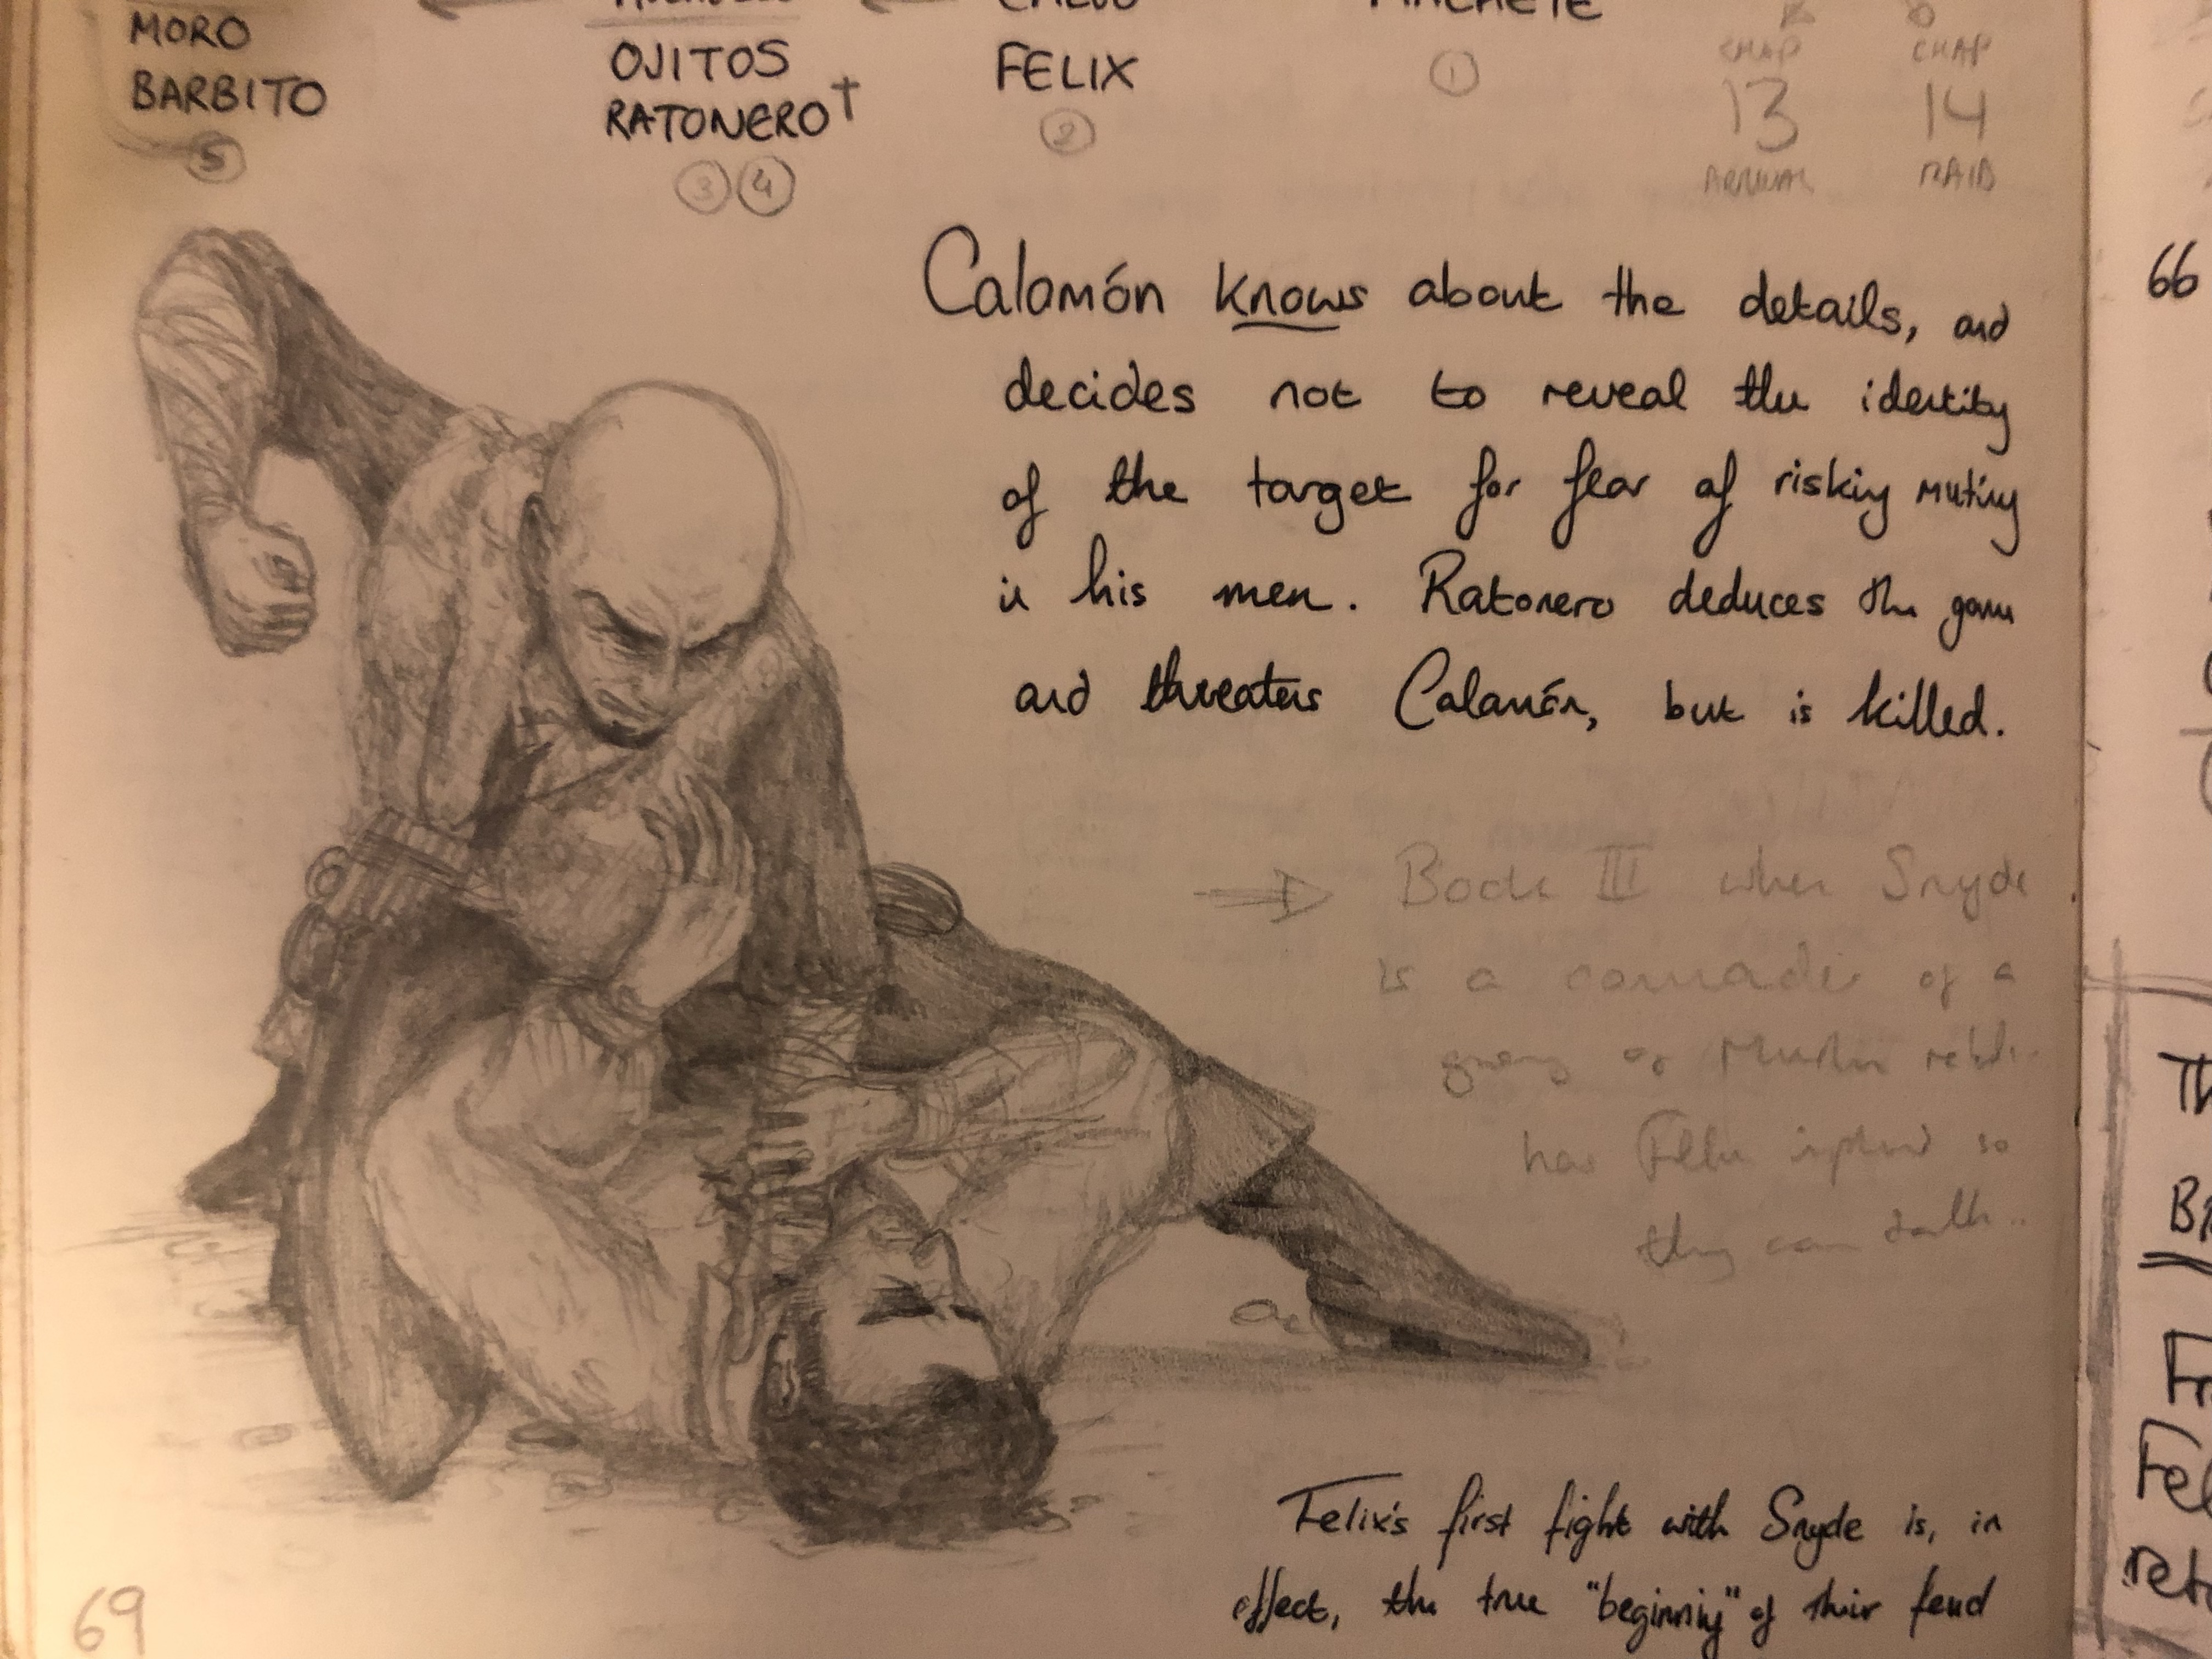 MORO
BARBITO
5
OJITOS
RATONERO†
3 4
CALVO
FELIX
2
MACHETE
1
CHAP CHAP
13 14
ARRIVAL RAID
Calamón knows about the details, and
decides not to reveal the identity
of the target for fear of risking mutiny
in his men. Ratonero deduces the game
and threatens Calamón, but is killed.
Book III when Snyde
is a comrade of a
group of
has Felix so
they can talk..
Felix's first fight with Snyde is, in
effect, the true "beginning" of their feud
69
66